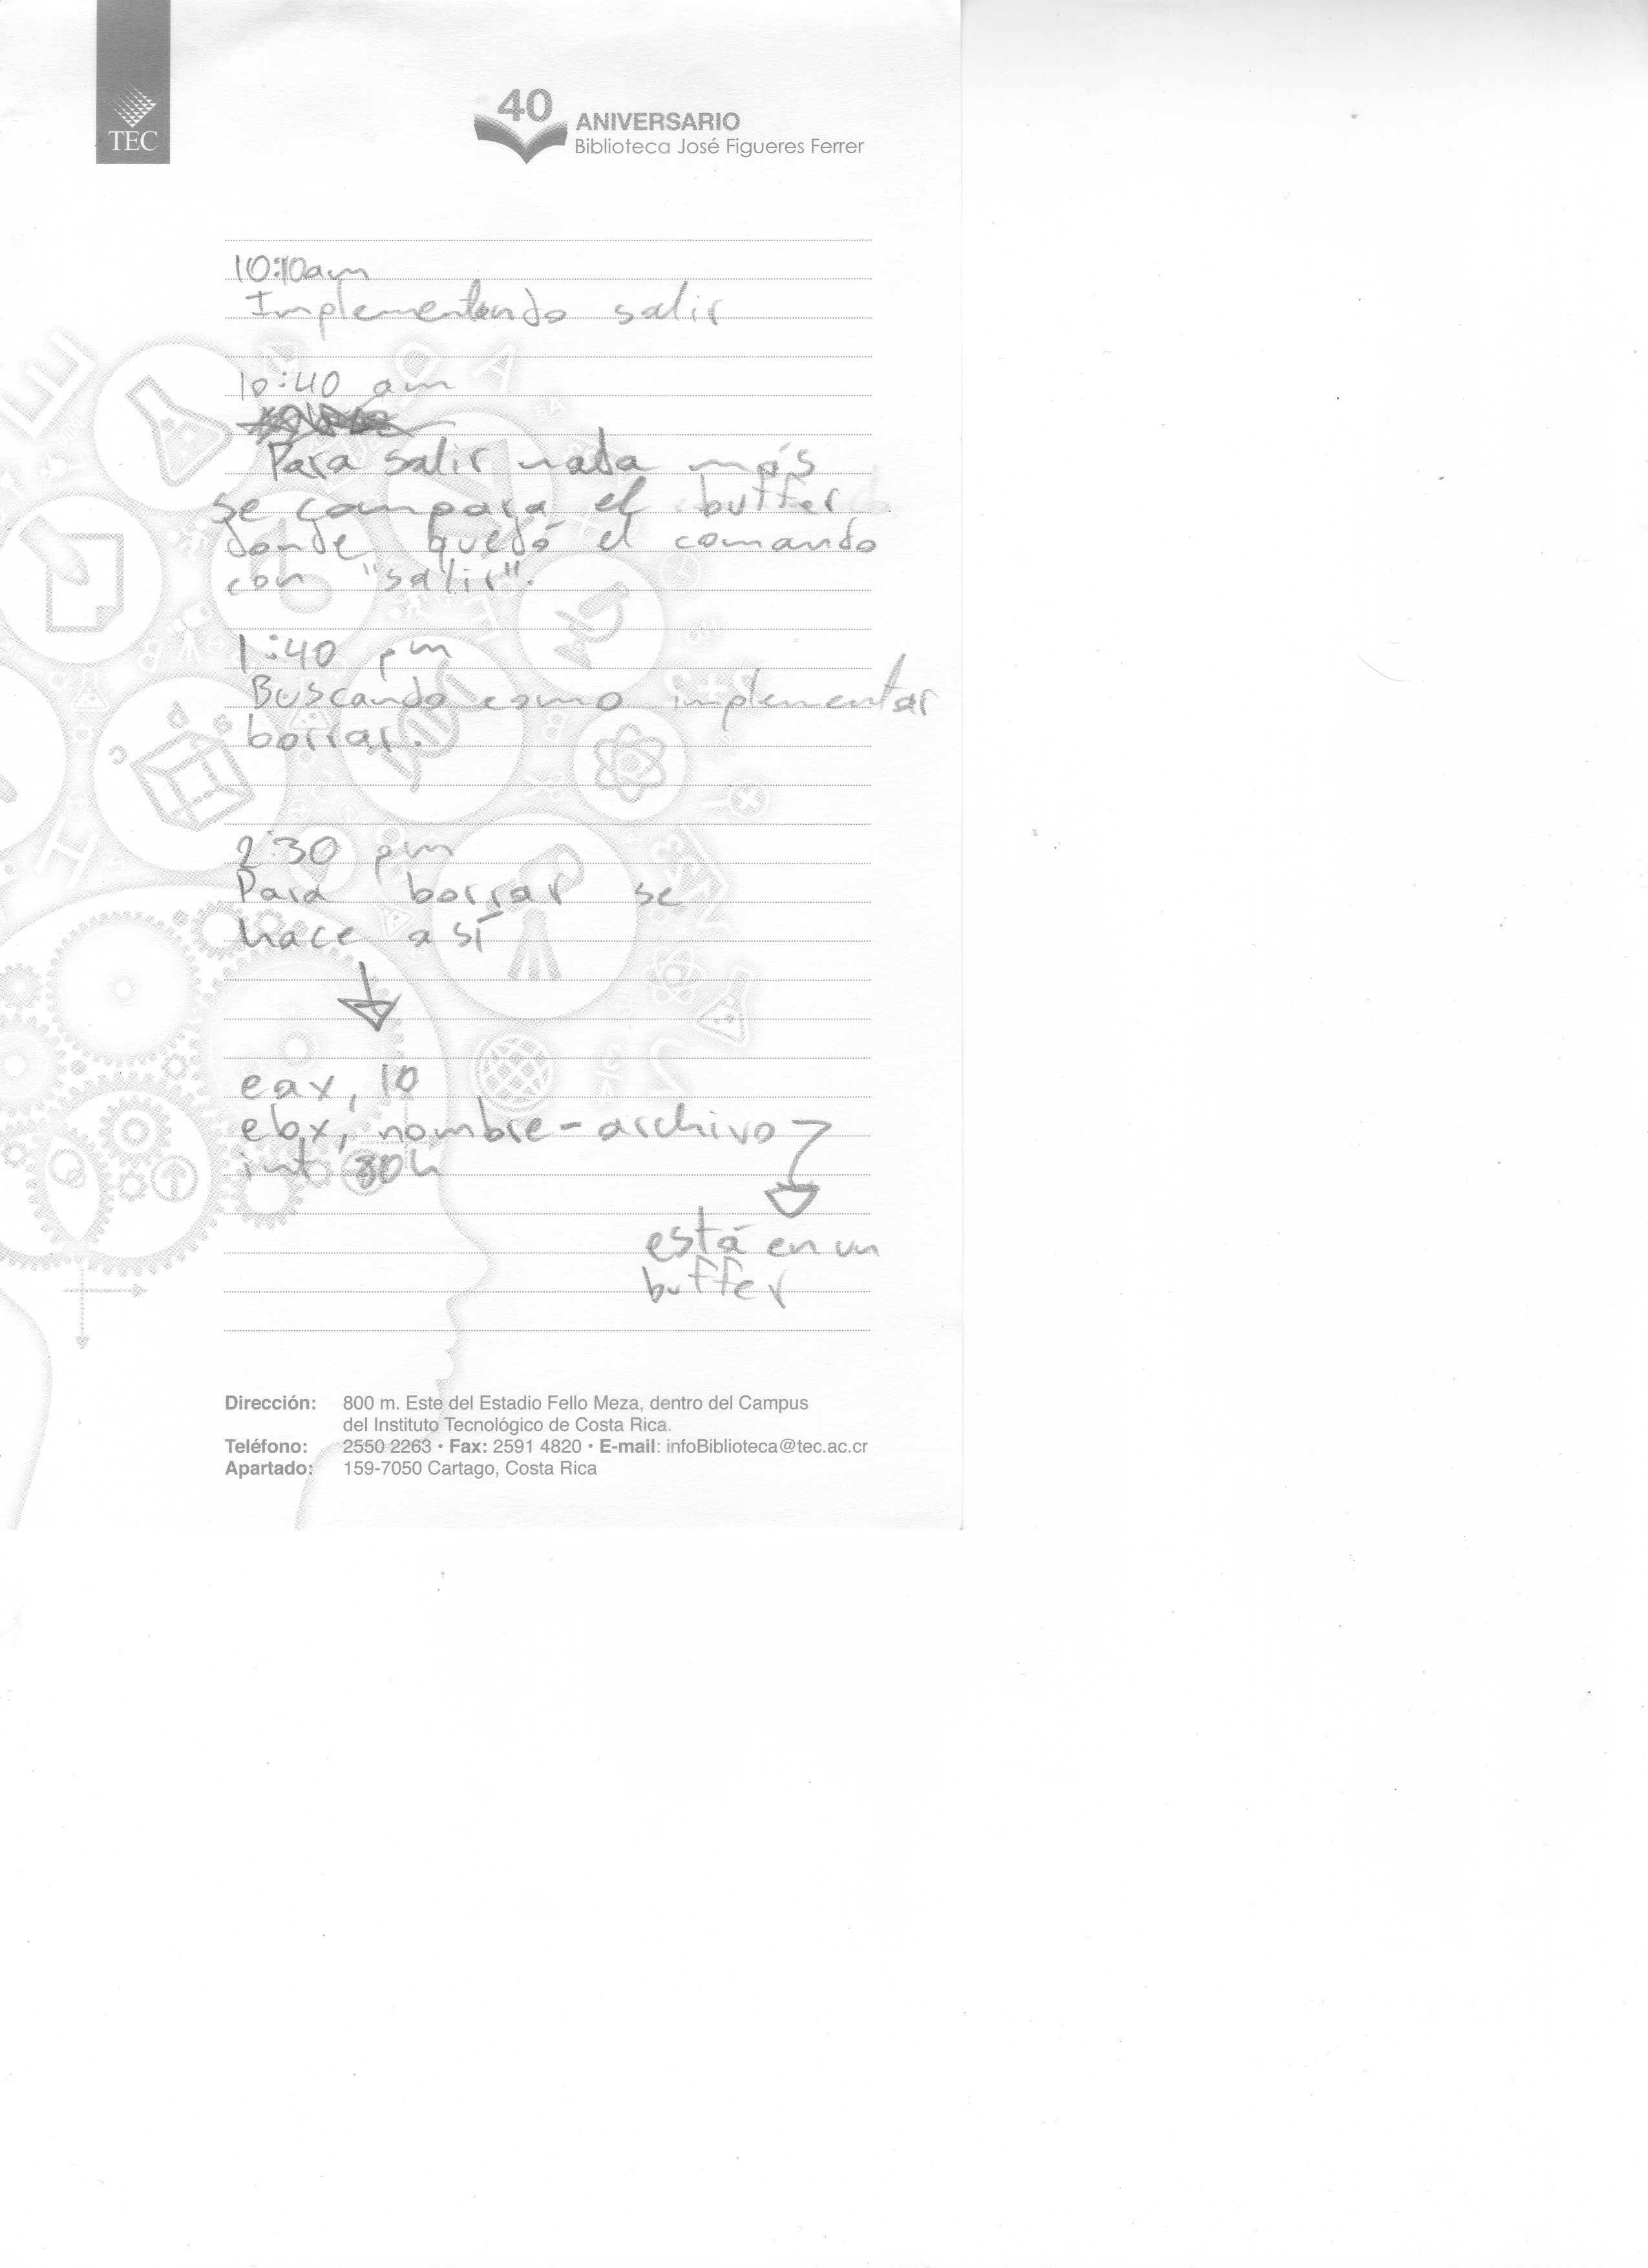 TEC
40
ANIVERSARIO
Biblioteca José Figueres Ferrer
10:10am
Implementando salir
10:40 am
Para salir nada más
se compara el buffer
donde quedó el comando
con "salir".
1:40 pm
Buscando como implementar
borrar.
2:30 pm
Para borrar se
hace así
eax, 10
ebx, nombre-archivo
int 80h
está en un
buffer
Dirección: 800 m. Este del Estadio Fello Meza, dentro del Campus
del Instituto Tecnológico de Costa Rica.
Teléfono: 2550 2263 • Fax: 2591 4820 • E-mail: infoBiblioteca@tec.ac.cr
Apartado: 159-7050 Cartago, Costa Rica